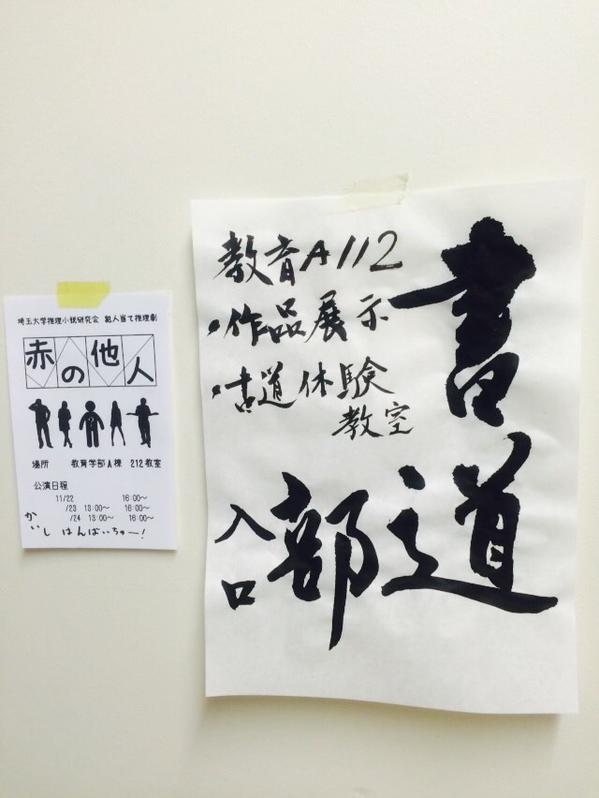 埼玉大学推理小説研究会 犯人当て推理劇
赤の他人
場所 教育学部A棟 212教室
公演日程
11/22 16:00～
/23 13:00～ 16:00～
/24 13:00～ 16:00～
かいし はんばいちゅー!
書道部
教育A112
・作品展示
・書道体験
教室
入口